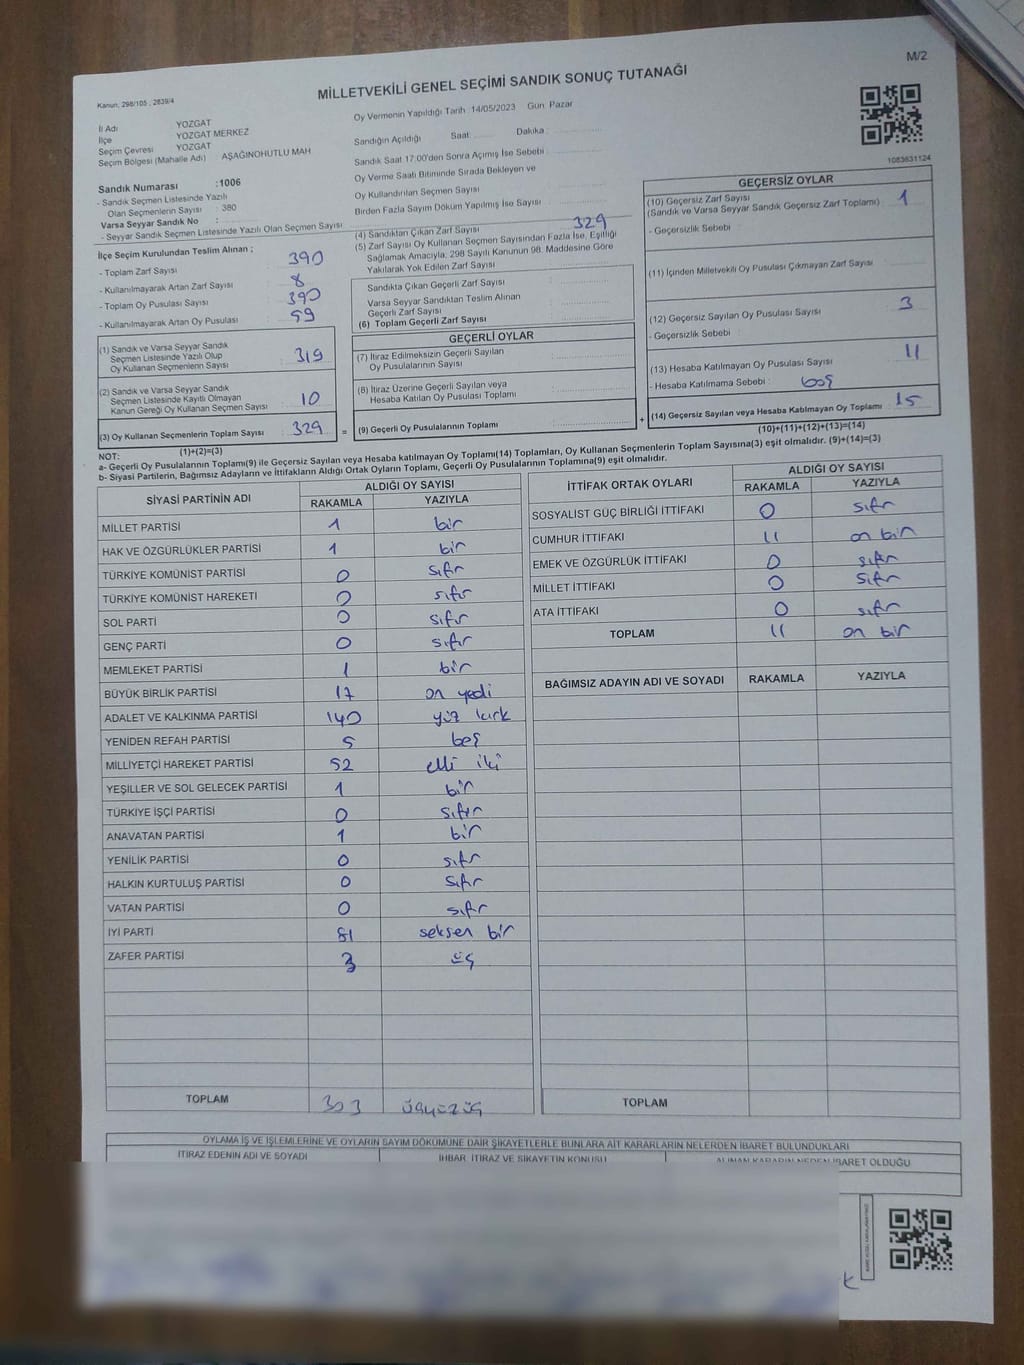 M/2
Kanun; 298/105 , 2839/4
MİLLETVEKİLİ GENEL SEÇİMİ SANDIK SONUÇ TUTANAĞI
İl Adı YOZGAT
İlçe YOZGAT MERKEZ
Seçim Çevresi YOZGAT
Seçim Bölgesi (Mahalle Adı) AŞAĞINOHUTLU MAH
Sandık Numarası :1006
- Sandık Seçmen Listesinde Yazılı
Olan Seçmenlerin Sayısı : 380
Varsa Seyyar Sandık No :
- Seyyar Sandık Seçmen Listesinde Yazılı Olan Seçmen Sayısı
Oy Vermenin Yapıldığı Tarih :14/05/2023 Gün Pazar
Sandığın Açıldığı Saat: Dakika:
Sandık Saat 17:00'den Sonra Açımış İse Sebebi :
Oy Verme Saati Bitiminde Sırada Bekleyen ve
Oy Kullandırılan Seçmen Sayısı
Birden Fazla Sayım Döküm Yapılmış İse Sayısı :
1083631124
İlçe Seçim Kurulundan Teslim Alınan ;
- Toplam Zarf Sayısı : 390
- Kullanılmayarak Artan Zarf Sayısı : 8
- Toplam Oy Pusulası Sayısı : 390
- Kullanılmayarak Artan Oy Pusulası : 59
(1) Sandık ve Varsa Seyyar Sandık
Seçmen Listesinde Yazılı Olup
Oy Kullanan Seçmenlerin Sayısı : 319
(2) Sandık ve Varsa Seyyar Sandık
Seçmen Listesinde Kayıtlı Olmayan
Kanun Gereği Oy Kullanan Seçmen Sayısı : 10
(3) Oy Kullanan Seçmenlerin Toplam Sayısı : 329
(1)+(2)=(3)
(4) Sandıktan Çıkan Zarf Sayısı : 329
(5) Zarf Sayısı Oy Kullanan Seçmen Sayısından Fazla İse, Eşitliği
Sağlamak Amacıyla, 298 Sayılı Kanunun 98. Maddesine Göre
Yakılarak Yok Edilen Zarf Sayısı :
Sandıkta Çıkan Geçerli Zarf Sayısı :
Varsa Seyyar Sandıktan Teslim Alınan
Geçerli Zarf Sayısı :
(6) Toplam Geçerli Zarf Sayısı :
GEÇERLİ OYLAR
(7) İtiraz Edilmeksizin Geçerli Sayılan
Oy Pusulalarının Sayısı :
(8) İtiraz Üzerine Geçerli Sayılan veya
Hesaba Katılan Oy Pusulası Toplamı :
= (9) Geçerli Oy Pusulalarının Toplamı : +
GEÇERSİZ OYLAR
(10) Geçersiz Zarf Sayısı
(Sandık ve Varsa Seyyar Sandık Geçersiz Zarf Toplamı) : 1
- Geçersizlik Sebebi :
(11) İçinden Milletvekili Oy Pusulası Çıkmayan Zarf Sayısı :
(12) Geçersiz Sayılan Oy Pusulası Sayısı : 3
- Geçersizlik Sebebi :
(13) Hesaba Katılmayan Oy Pusulası Sayısı : 11
- Hesaba Katılmama Sebebi : boş
(14) Geçersiz Sayılan veya Hesaba Katılmayan Oy Toplamı : 15
(10)+(11)+(12)+(13)=(14)
NOT:
a- Geçerli Oy Pusulalarının Toplamı(9) ile Geçersiz Sayılan veya Hesaba katılmayan Oy Toplamı(14) Toplamları, Oy Kullanan Seçmenlerin Toplam Sayısına(3) eşit olmalıdır. (9)+(14)=(3)
b- Siyasi Partilerin, Bağımsız Adayların ve İttifakların Aldığı Ortak Oyların Toplamı, Geçerli Oy Pusulalarının Toplamına(9) eşit olmalıdır.
SİYASİ PARTİNİN ADI ALDIĞI OY SAYISI
RAKAMLA YAZIYLA
MİLLET PARTİSİ 1 bir
HAK VE ÖZGÜRLÜKLER PARTİSİ 1 bir
TÜRKİYE KOMÜNİST PARTİSİ 0 sıfır
TÜRKİYE KOMÜNİST HAREKETİ 0 sıfır
SOL PARTİ 0 sıfır
GENÇ PARTİ 0 sıfır
MEMLEKET PARTİSİ 1 bir
BÜYÜK BİRLİK PARTİSİ 17 on yedi
ADALET VE KALKINMA PARTİSİ 140 yüz kırk
YENİDEN REFAH PARTİSİ 5 beş
MİLLİYETÇİ HAREKET PARTİSİ 52 elli iki
YEŞİLLER VE SOL GELECEK PARTİSİ 1 bir
TÜRKİYE İŞÇİ PARTİSİ 0 sıfır
ANAVATAN PARTİSİ 1 bir
YENİLİK PARTİSİ 0 sıfır
HALKIN KURTULUŞ PARTİSİ 0 sıfır
VATAN PARTİSİ 0 sıfır
İYİ PARTİ 81 seksen bir
ZAFER PARTİSİ 3 üç
TOPLAM 303 üçyüzüç
İTTİFAK ORTAK OYLARI ALDIĞI OY SAYISI
RAKAMLA YAZIYLA
SOSYALİST GÜÇ BİRLİĞİ İTTİFAKI 0 sıfır
CUMHUR İTTİFAKI 11 on bir
EMEK VE ÖZGÜRLÜK İTTİFAKI 0 sıfır
MİLLET İTTİFAKI 0 sıfır
ATA İTTİFAKI 0 sıfır
TOPLAM 11 on bir
BAĞIMSIZ ADAYIN ADI VE SOYADI RAKAMLA YAZIYLA
TOPLAM
OYLAMA İŞ VE İŞLEMLERİNE VE OYLARIN SAYIM DÖKÜMÜNE DAİR ŞİKAYETLERLE BUNLARA AİT KARARLARIN NELERDEN İBARET BULUNDUKLARI
İTİRAZ EDENİN ADI VE SOYADI İHBAR, İTİRAZ VE ŞİKAYETİN KONUSU ALINAN KARARIN NEDEN İBARET OLDUĞU